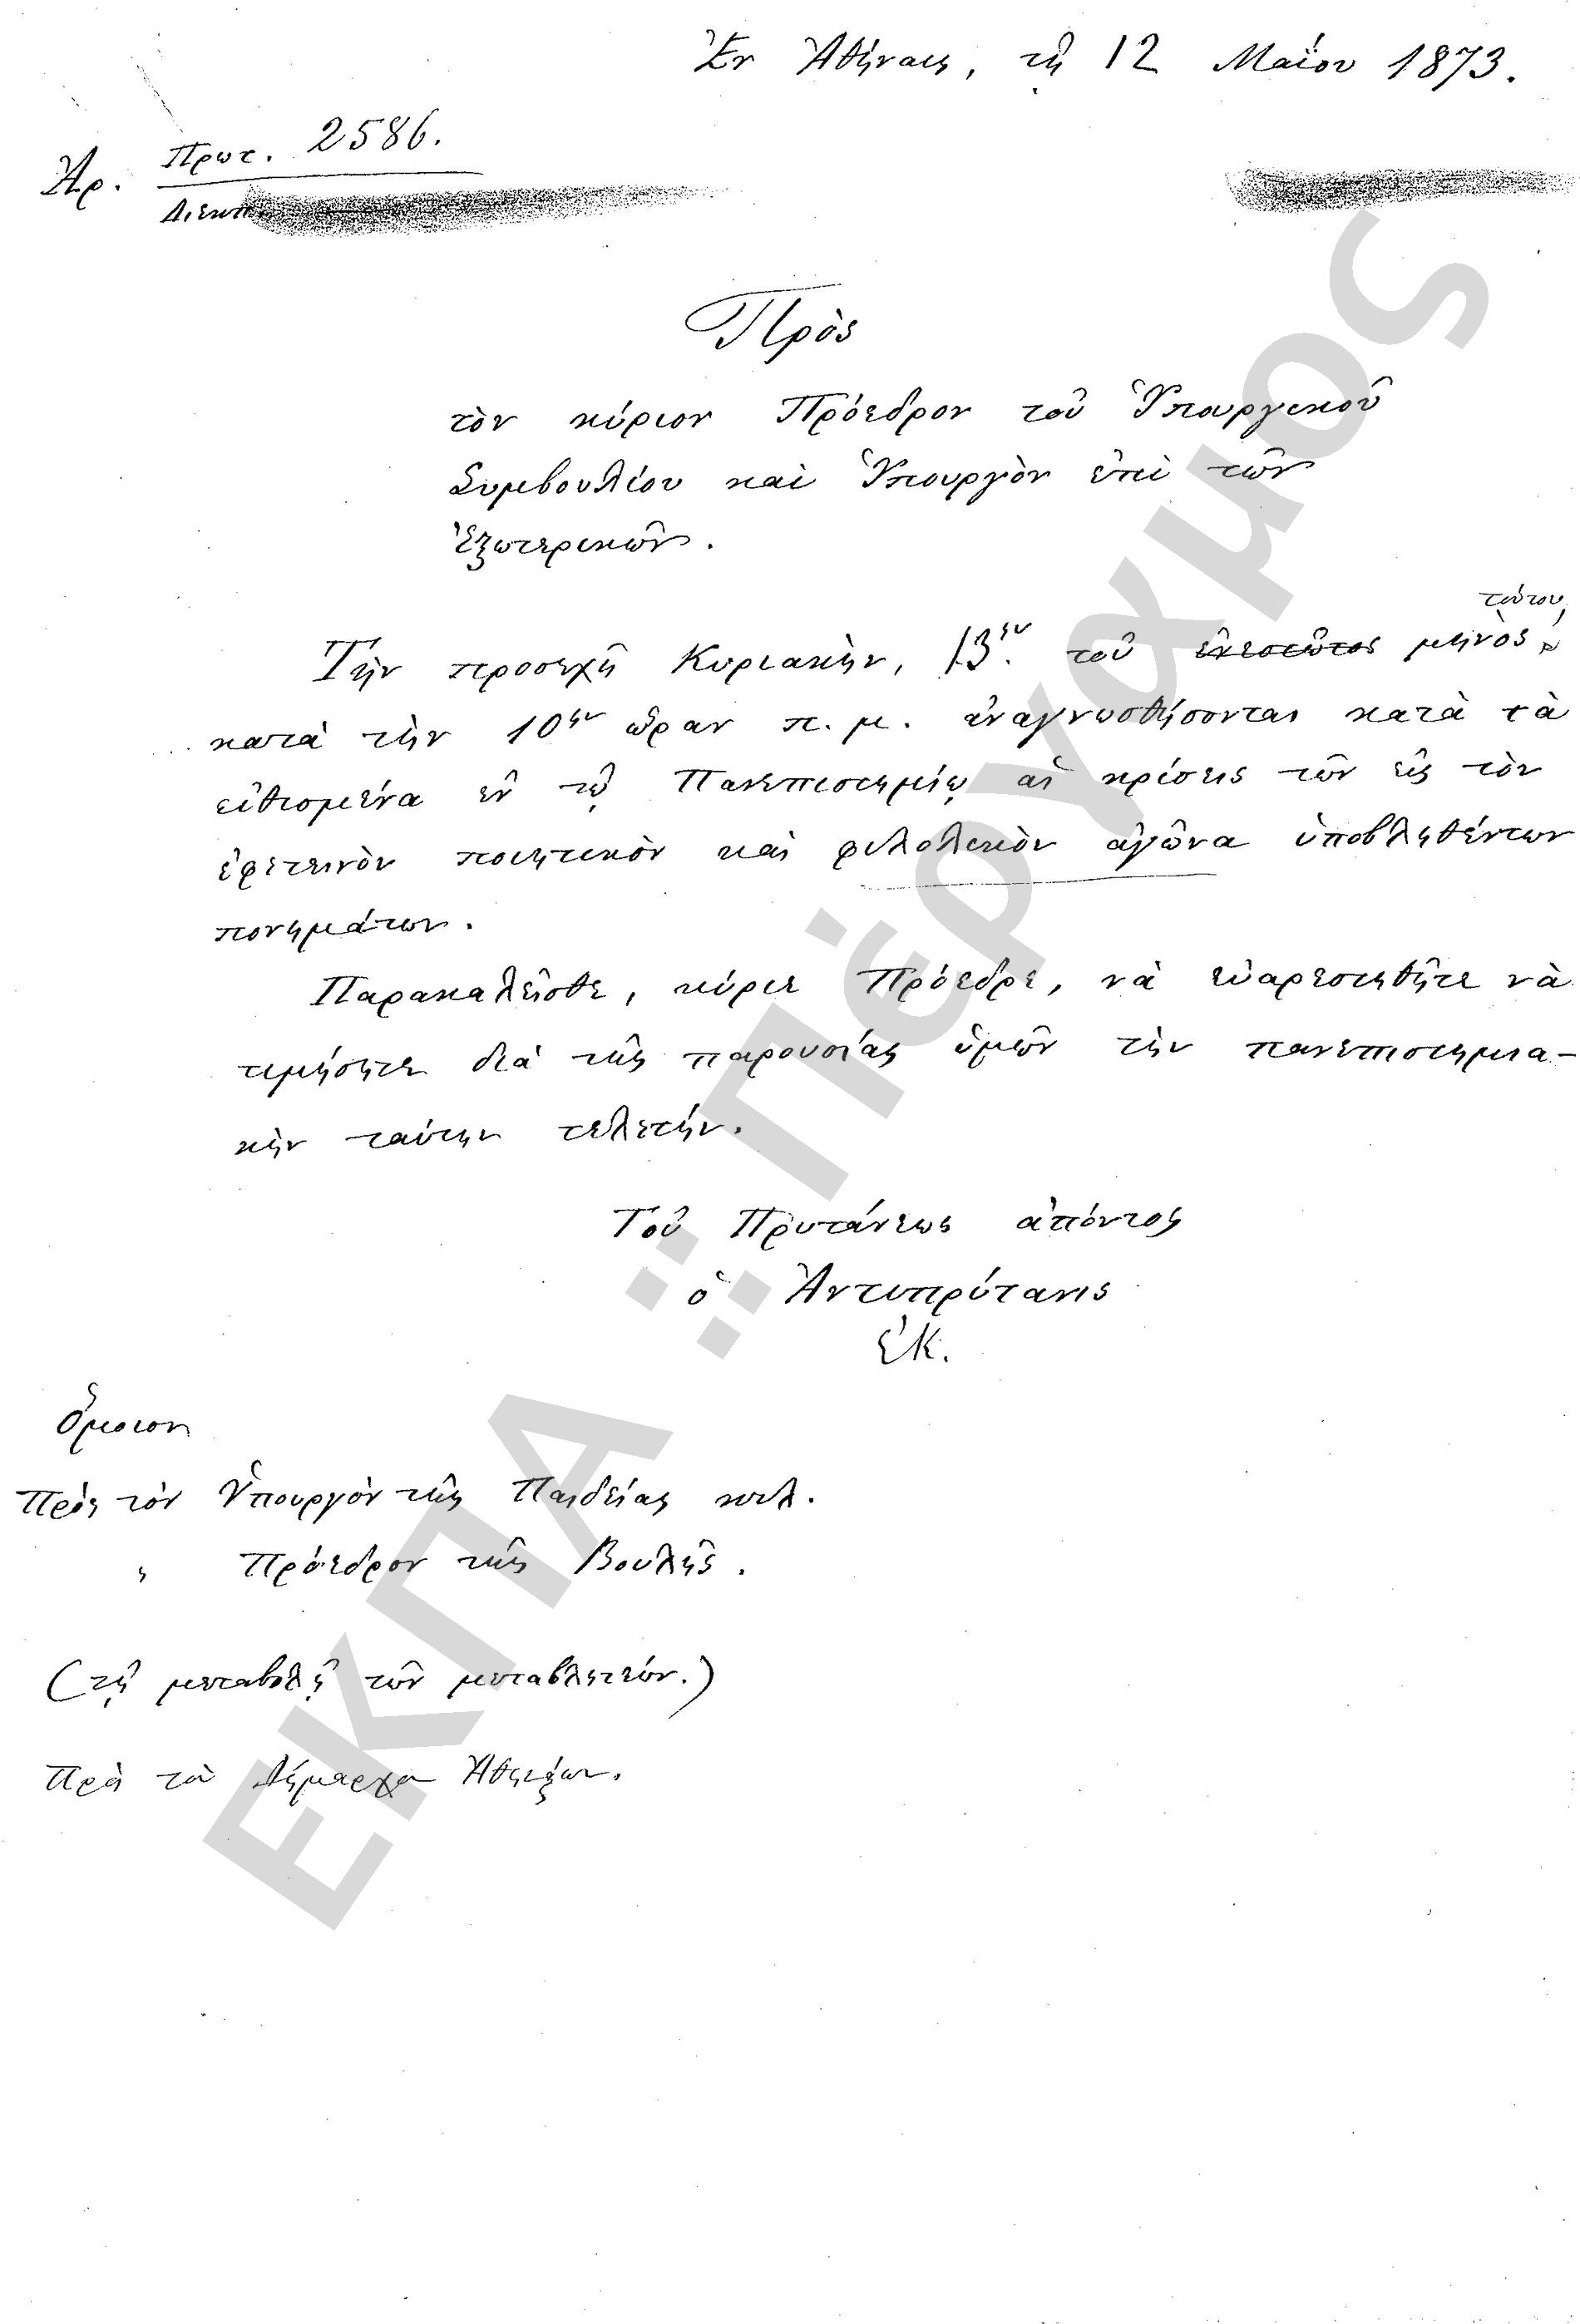 Ἐν Ἀθήναις, τῇ 12 Μαΐου 1873.
Ἀρ. Πρωτ. 2586.
Διεκπ
Πρὸς
τὸν κύριον Πρόεδρον τοῦ Ὑπουργικοῦ
Συμβουλίου καὶ Ὑπουργὸν ἐπὶ τῶν
Ἐξωτερικῶν.
τούτου,
Τὴν προσεχῆ Κυριακὴν, 13ην. τοῦ ἐνεστῶτος μηνὸς
κατὰ τὴν 10ην ὥραν π. μ. ἀναγνωσθήσονται κατὰ τὰ
εἰθισμένα ἐν τῷ Πανεπιστημίῳ αἱ κρίσεις τῶν εἰς τὸν
ἐφετεινὸν ποιητικὸν καὶ φιλολικὸν ἀγῶνα ὑποβληθέντων
πονημάτων.
Παρακαλεῖσθε, κύριε Πρόεδρε, νὰ εὐαρεστηθῆτε νὰ
τιμήσητε διὰ τῆς παρουσίας ὑμῶν τὴν πανεπιστημια-
κὴν ταύτην τελετήν.
Τοῦ Πρυτάνεως ἀπόντος
ὁ Ἀντιπρύτανις
ΕΚ.
Ὅμοιον
Πρὸς τὸν Ὑπουργὸν τῆς Παιδείας κτλ.
" Πρόεδρον τῆς Βουλῆς.
(τῇ μεταβολῇ τῶν μεταβλητέων.)
Πρὸς τὸν Δήμαρχον Ἀθηναίων.
ΕΚΠΑ :: Πέργαμος